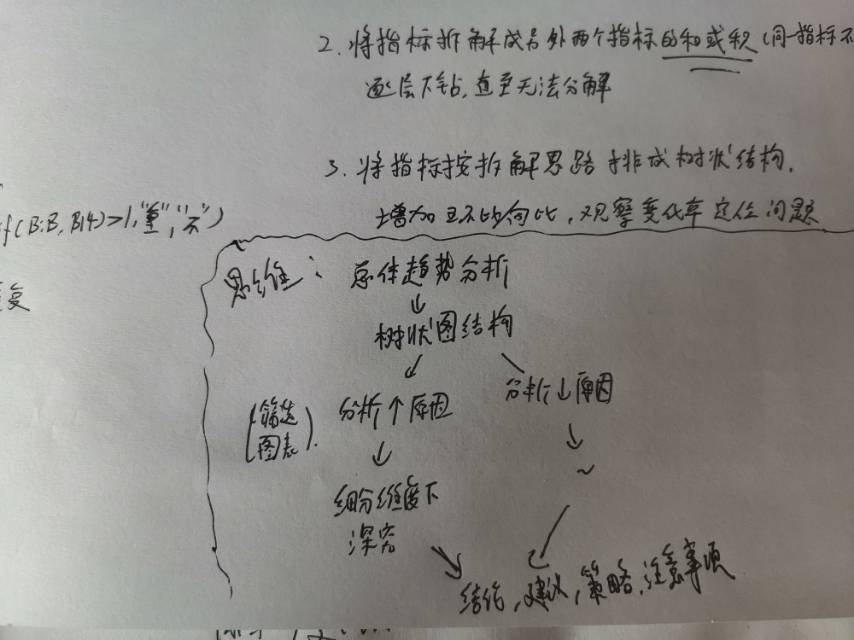 2. 将指标拆解成另外两个指标的和或积(同一指标不
逐层下钻,直至无法分解
3. 将指标按拆解思路排成树状结构.
增加环比同比,观察变化率定位问题
f(B:B, B14)>1,"重","不")
复
思维: 总体趋势分析
↓
树状图结构
↙ ↘
(筛选图表). 分析↑原因 分析↓原因
↓ ↓
细分维度下 ~
深究
↘ ↙
结论,建议,策略,注意事项